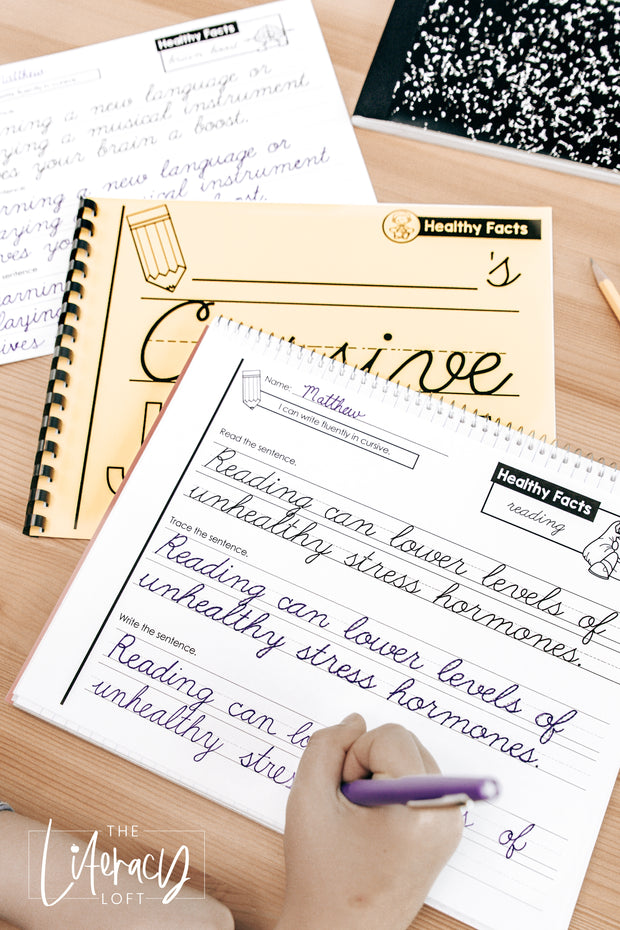 Healthy Facts
brain boost
Matthew
ning a new language or
ying a musical instrument
es your brain a boost.
arning a new language or
laying a musical instrument
ves your boost.
arning
laying
ives
Healthy Facts
's
Cursive
Name: Matthew
I can write fluently in cursive.
Healthy Facts
reading
Read the sentence.
Reading can lower levels of
unhealthy stress hormones.
Trace the sentence.
Reading can lower levels of
unhealthy stress hormones.
Write the sentence.
Reading can lo
unhealthy stre
s of
THE
Literacy
LOFT